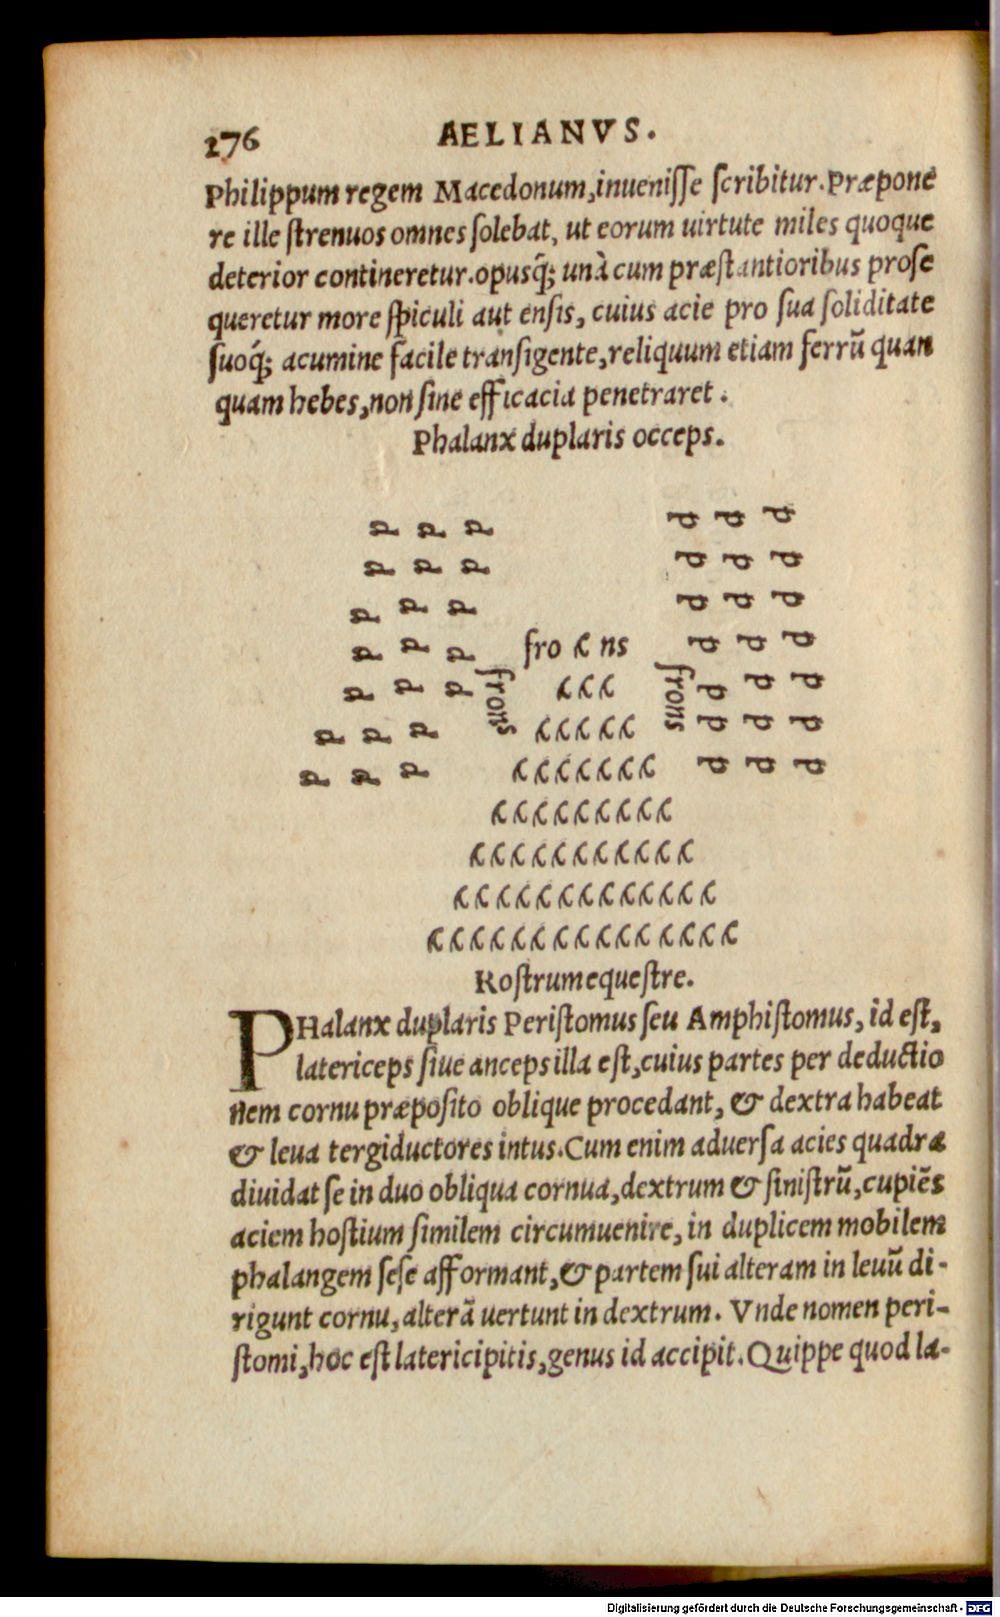 276 AELIANVS.
Philippum regem Macedonum,inuenisse scribitur.Præpone
re ille strenuos omnes solebat, ut eorum uirtute miles quoque
deterior contineretur.opusq́; unà cum præstantioribus prose
queretur more spiculi aut ensis, cuius acie pro sua soliditate
suoq́; acumine facile transigente,reliquum etiam ferrū quan
quam hebes,non sine efficacia penetraret.
Phalanx duplaris occeps.
p p p p p p
p p p p p p
p p p p p p
p p p fro ns p p p
p p p frons frons p p p
p p p p p p
p p p p p p
Rostrum equestre.
PHalanx duplaris Peristomus seu Amphistomus, id est,
latericeps siue anceps illa est,cuius partes per deductio
nem cornu præposito oblique procedant, & dextra habeat
& leua tergiductores intus.Cum enim aduersa acies quadræ
diuidat se in duo obliqua cornua,dextrum & sinistrū,cupiēs
aciem hostium similem circumuenire, in duplicem mobilem
phalangem sese afformant,& partem sui alteram in leuū di-
rigunt cornu, alterā uertunt in dextrum. Vnde nomen peri-
stomi,hoc est latericipitis,genus id accipit.Quippe quod la-
Digitalisierung gefördert durch die Deutsche Forschungsgemeinschaft - DFG